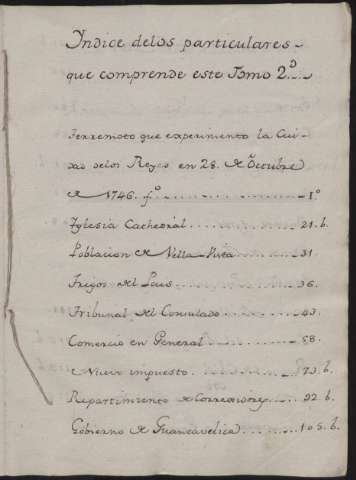 Yndice delos particulares
que comprende este Tomo 2.º
Terremoto que experimento la Ciu-
dad delos Reyes en 28. de Octubre
de 1746. fº 1º
Yglesia Cathedral 21. b.
Poblacion de Vella-Vista 31
Trigos del Pais 36.
Tribunal del Consulado 43.
Comercio en General 58.
Nuevo impuesto 73. b.
Repartimiento de Corregidores 92 b.
Gobierno de Guancavelica 105. b.